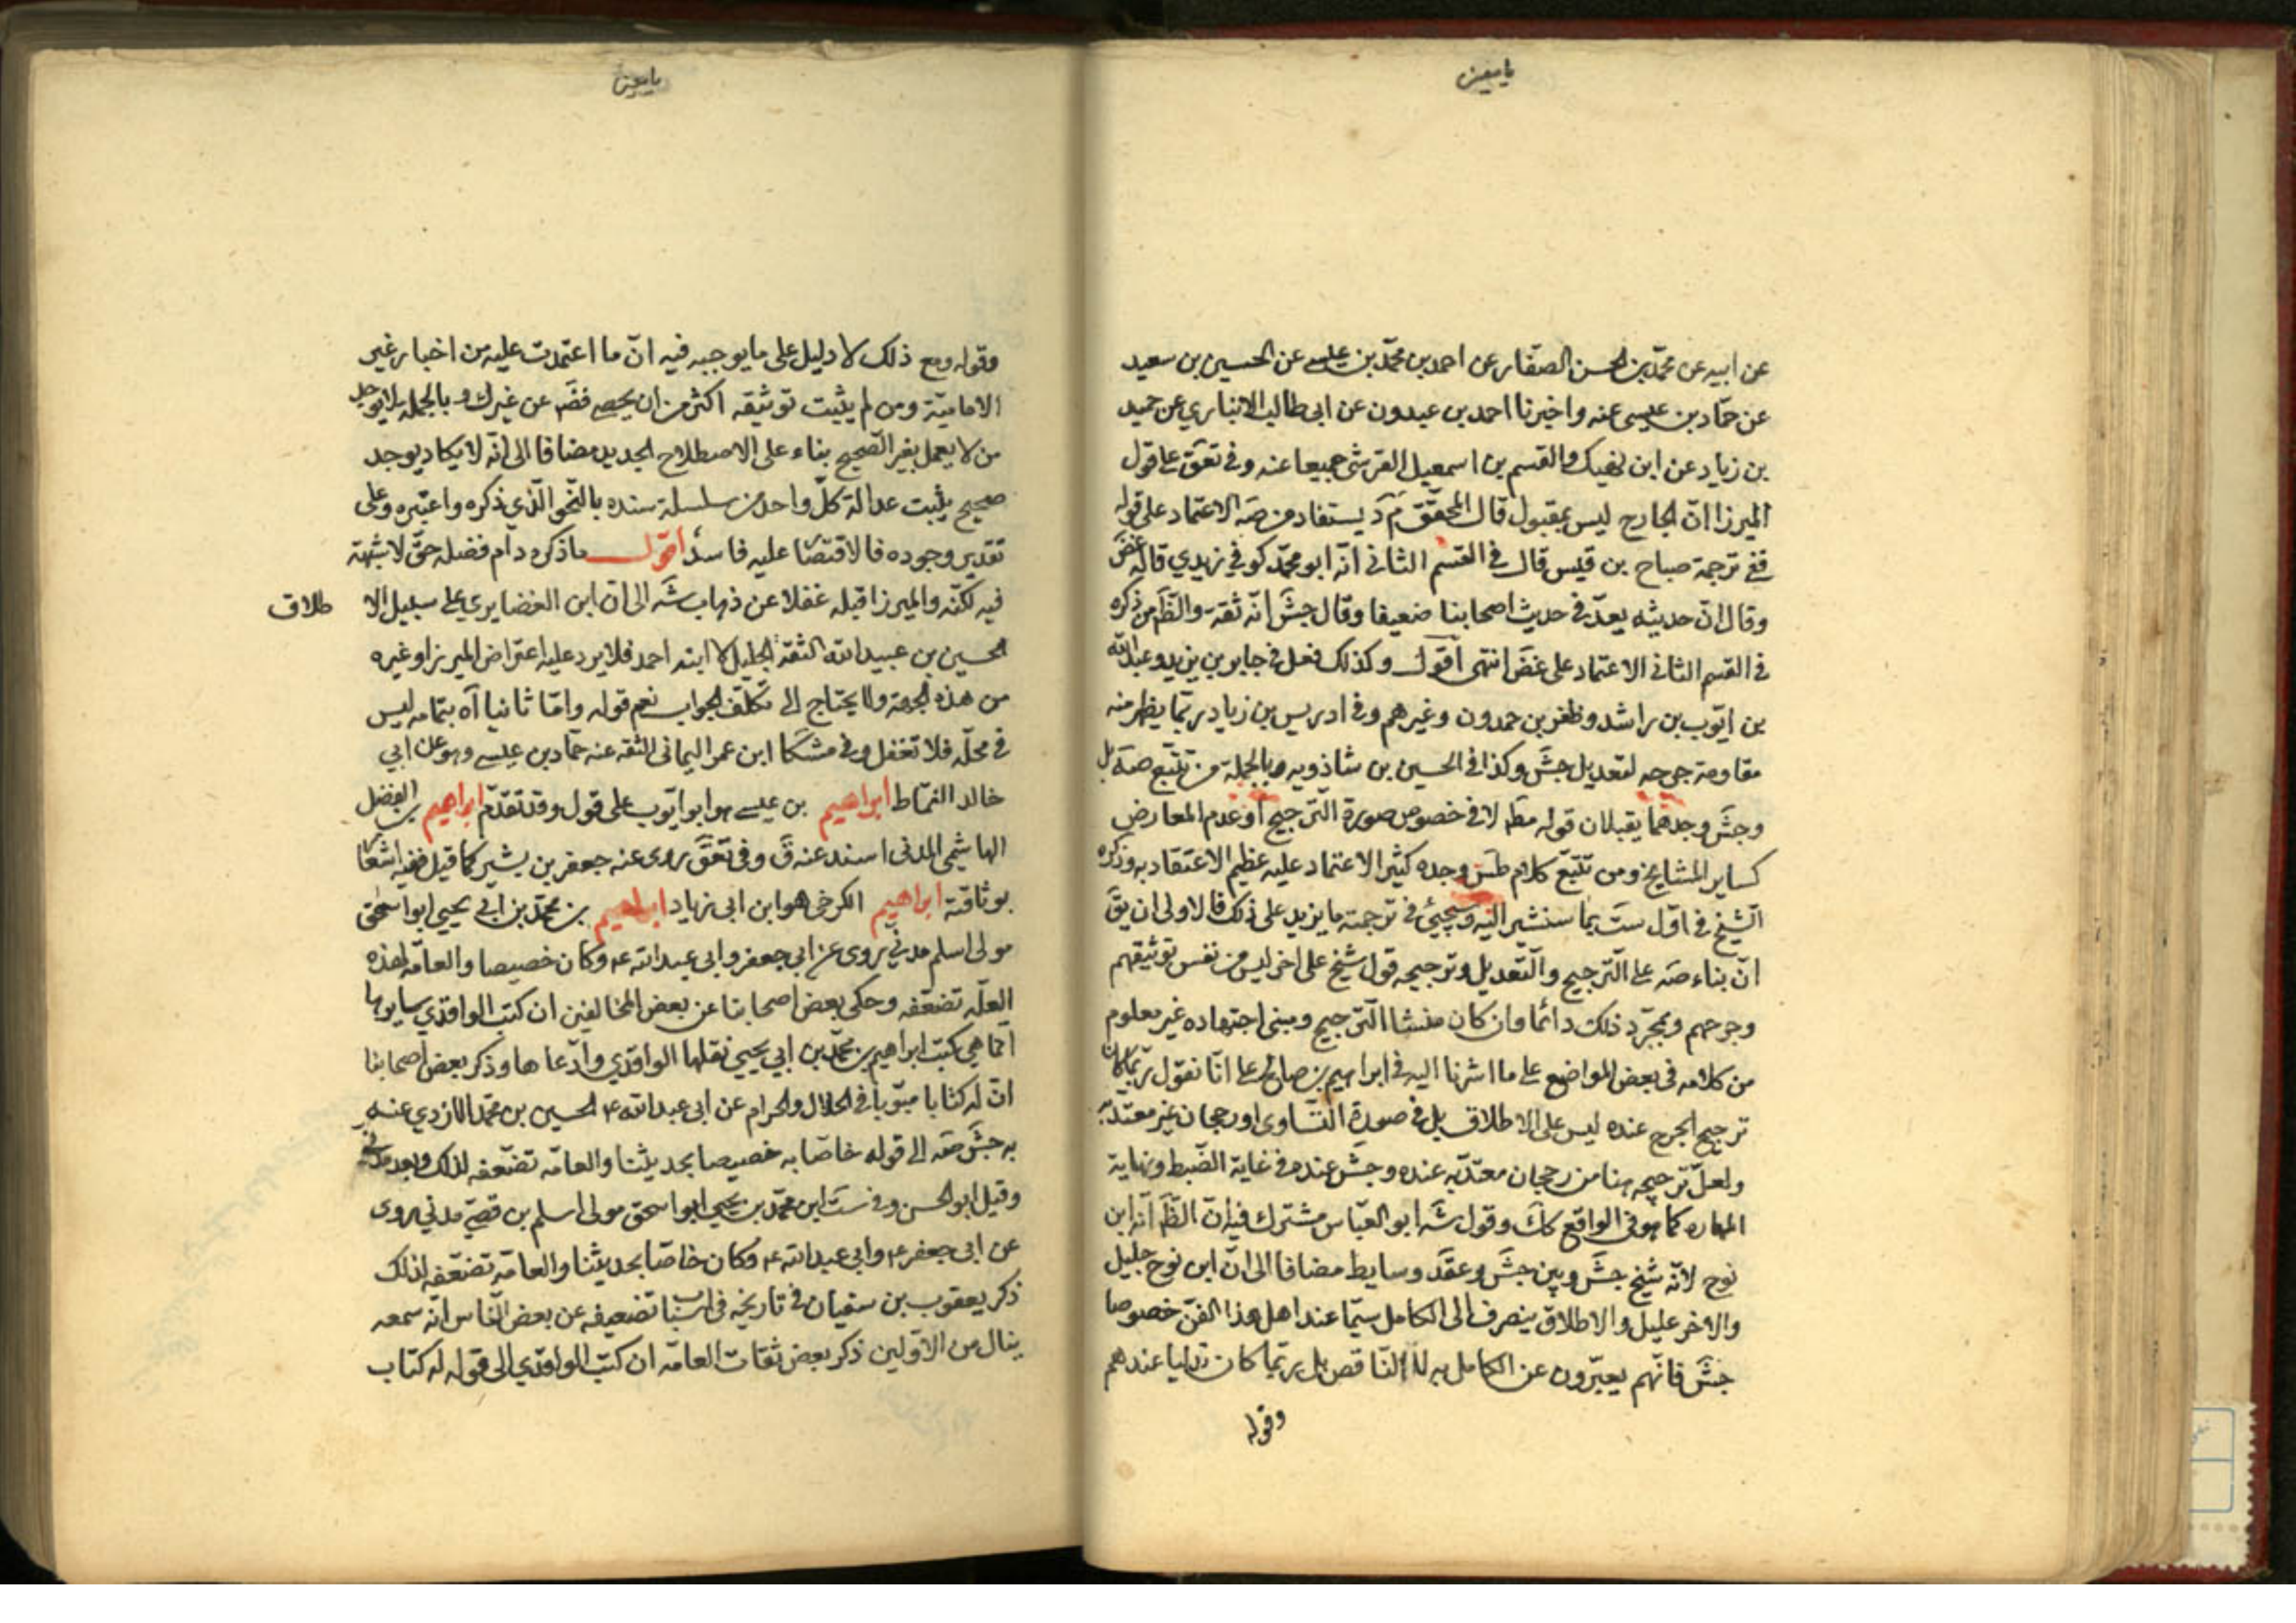 يا معين
عن ابيه عن محمّد بن الحسن الصفّار عن احمد بن محمّد بن عيسى عن الحسين بن سعيد
عن حمّاد بن عيسى عنه واخبرنا احمد بن عبدون عن ابى طالب الانباري عن حميد
بن زياد عن ابن نهيك والقسم بن اسمعيل القرشى جميعا عنه وفى تعق على قول
الميرزا انّ الجارح ليس بمقبول قال المحقّق م د يستفاد من صه الاعتماد على قوله
ففى ترجمة صباح بن قيس قال فى القسم الثانى انّه ابو محمّد كوفى زيدي قاله غض
وقال انّ حديثه يعدّ فى حديث اصحابنا ضعيفا وقال جش انّه ثقة والظّم من ذكره
فى القسم الثانى الاعتماد على غض انتهى اقول وكذلك فعل فى جابر بن يزيد وعبد الله
بن ايّوب بن راشد وظفر بن حمدون وغيرهم وفى ادريس بن زياد ربّما يظهر منه
مقاومة جرحه لتعديل جش وكذا فى الحسين بن شاذويه وبالجملة من تتبّع صه بل
وجش وجدهما يقبلان قوله مط لا فى خصوص صورة التّرجيح او عدم المعارض
كساير المشايخ ومن تتبّع كلام طس وجده كثير الاعتماد عليه عظيم الاعتقاد به وذكره
الشّيخ فى اوّل ست بما سنشير اليه وسيجيئ فى ترجمته ما يزيد على ذلك فالاولى ان يق
انّ بناء صه على التّرجيح والتّعديل وترجيحه قول شيخ على اخر ليس من نفس توثيقهم
وجرحهم وبمجرّد ذلك دائما وان كان منشا التّرجيح ومبنى اجتهاده غير معلوم
من كلامه فى بعض المواضع على ما اشرنا اليه فى ابراهيم بن صالح على انّا نقول ربّما كان
ترجيح الجرح عنده ليس على الاطلاق بل فى صورة التّساوى او رجحان غير معتدّ به
ولعلّ ترجيحه هنا من رجحان معتدّ به عنده وجش عنده فى غاية الضّبط ونهاية
المهاره كما هو فى الواقع كك وقول شه ابو العبّاس مشترك فيه انّ الظّم انّه ابن
نوح لانّه شيخ جش وبين جش وعقد وسايط مضافا الى انّ ابن نوح جليل
والاخر عليل والاطلاق ينصرف الى الكامل سيّما عند اهل هذا الفنّ خصوصا
جش فانّهم يعبّرون عن الكامل به لا النّاقص بل ربّما كان تدليسا عندهم
وقوله
يا معين
وقوله ومع ذلك لا دليل على ما يوجبه فيه انّ ما اعتمدت عليه من اخبار غير
الاماميّة ومن لم يثبت توثيقه اكثر من ان يحصى فضّم عن غيرك وبالجمله لا يوجد
من لا يعمل بغير الصّحيح بناء على الاصطلاح الجديد مضافا الى انّه لا يكاد يوجد
صحيح يثبت عدالة كلّ واحد من سلسلة سنده بالنّحو الّذي ذكره واعتبره وعلى
تقدير وجوده فالاقتصار عليه فاسد اقول ما ذكره دام فضله حقّ لا شبهة
فيه لكنّه والميرزا قبله غفلا عن ذهاب شه الى ان ابن الغضايري على سبيل الا طلاق
الحسين بن عبيد الله الثقة الجليل لا ابنه احمد فلا يرد عليه اعتراض الميرزا وغيره
من هذه الجهة ولا يحتاج الى تكلّف الجواب نعم قوله وامّا ثانيا آه بتمامه ليس
فى محلّه فلا تغفل وفى مشكا ابن عمر اليمانى الثقه عنه حمّاد بن عيسى وهو عن ابي
خالد القمّاط ابراهيم بن عيسى هو ابو ايّوب على قول وقد تقدّم ابراهيم بن الفضل
الهاشمي المدنى اسند عنه ق وفى تعق روى عنه جعفر بن بشير كما قيل ففيه اشعار
بوثاقته ابراهيم الكرخى هو ابن ابى زياد ابراهيم بن محمّد بن ابي يحيى ابو اسحق
مولى اسلم مدني روى عن ابي جعفر وابى عبد الله ع وكان خصيصا والعامّه لهذه
العلّه تضعّفه وحكى بعض اصحابنا عن بعض المخالفين ان كتب الواقدي سايرها
انّما هي كتب ابراهيم بن محمّد بن ابي يحيى نقلها الواقدي وادّعاها وذكر بعض اصحابنا
انّ له كتابا مبوّبا فى الحلال والحرام عن ابى عبد الله ع الحسين بن محمّد الازدي عنه
به جش صه الى قوله خاصّا به خصيصا بحديثنا والعامّه تضعّفه لذلك وبعد مدنى
وقيل ابو الحسن وفى ست ابن محمّد بن يحيى ابو اسحق مولى اسلم بن قصيّ مدني روى
عن ابى جعفر ع وابي عبد الله ع وكان خاصّا بحديثنا والعامّه تضعّفه لذلك
ذكر يعقوب بن سفيان فى تاريخه فى اسباب تضعيفه عن بعض النّاس انّه سمعه
ينال من الاوّلين ذكر بعض ثقات العامّه ان كتب الواقدي الى قوله له كتاب